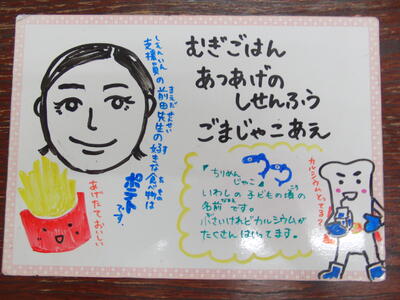 むぎごはん
あつあげの
しせんふう
ごまじゃこあえ
しえんいん
まえだせんせい
支援員の前田先生の好きな食べ物は
ポテトです。
あげたておいしい
ちりめん
じゃこ
いわしの子どもの頃の
名前です。
小さいけれどカルシウムが
たくさんはいってます。
カルシウムとってる?